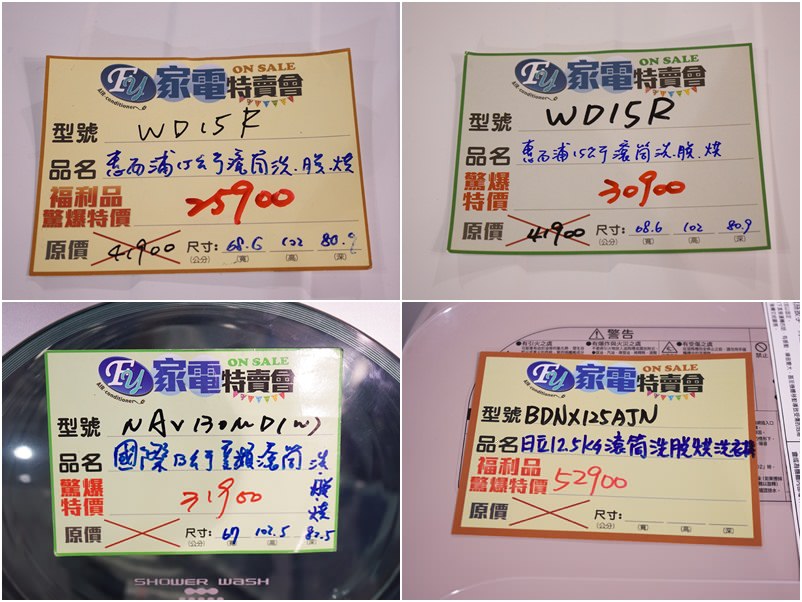 Fu 家電 ON SALE 特賣會
AIR conditioner
型號 WD15R
品名 惠而浦15公斤滾筒洗.脫.烘
福利品
驚爆特價 25900
原價 41900 尺寸: 68.6 102 80.9
(公分) (寬) (高) (深)
Fu 家電 ON SALE 特賣會
AIR conditioner
型號 WD15R
品名 惠而浦15公斤滾筒洗.脫.烘
驚爆
特價 30900
原價 41900 尺寸: 68.6 102 80.9
(公分) (寬) (高) (深)
Fu 家電 ON SALE 特賣會
AIR conditioner
型號 NAV130MD(W)
品名 國際13公斤 滾筒洗脫烘
驚爆
特價 31900
原價 尺寸: 67 102.5 82.5
(公分) (寬) (高) (深)
SHOWER WASH
警告
Fu 家電 ON SALE 特賣會
AIR conditioner
型號 BDNX125AJN
品名 日立12.5KG滾筒洗脫烘洗衣
福利品
驚爆特價 52900
原價 尺寸:
(公分) (寬) (高) (深)
禁止